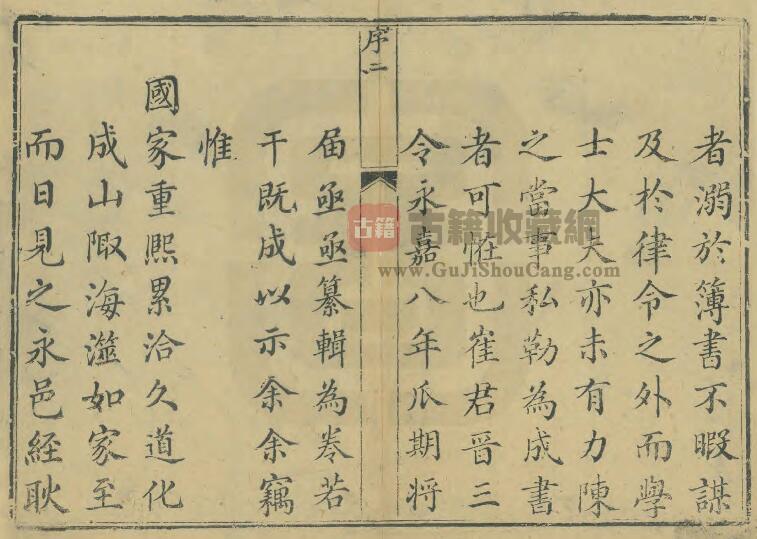 者溺於簿書不暇謀
及於律令之外而學
士大夫亦未有力陳
之當事私勒為成書
者可恠也崔君晉三
令永嘉八年瓜期将
序二
届亟亟纂輯為卷若
干既成以示余余竊
惟
國家重熈累洽久道化
成山陬海澨如家至
而日見之永邑経耿
古籍
古籍收藏網
www.GuJiShouCang.com